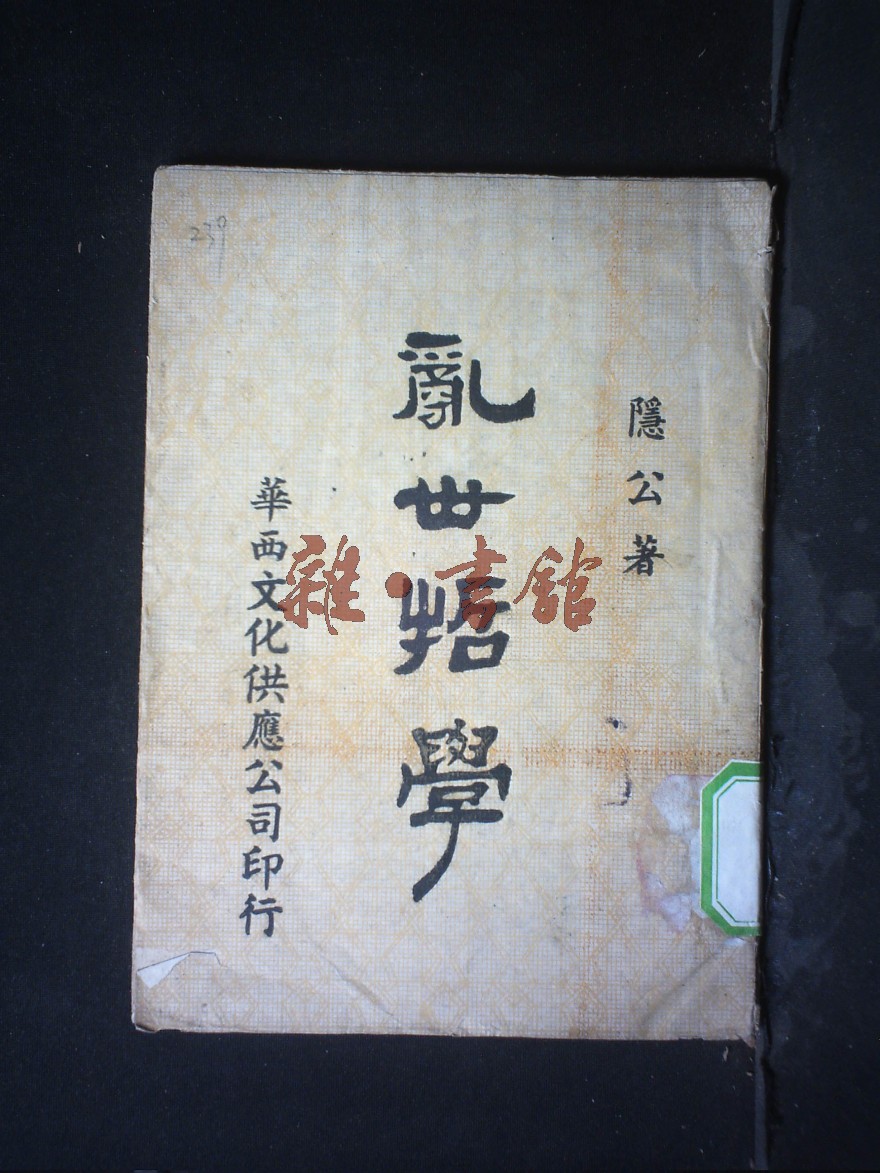 隱公著
亂世哲學
華西文化供應公司印行
239
雜·書館